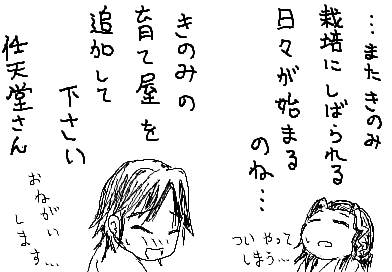 …またきのみ
栽培にしばられる
日々が始まる
のね…
ついやって
しまう…
きのみの
育て屋を
追加して
下さい
任天堂さん
おねがい
します…